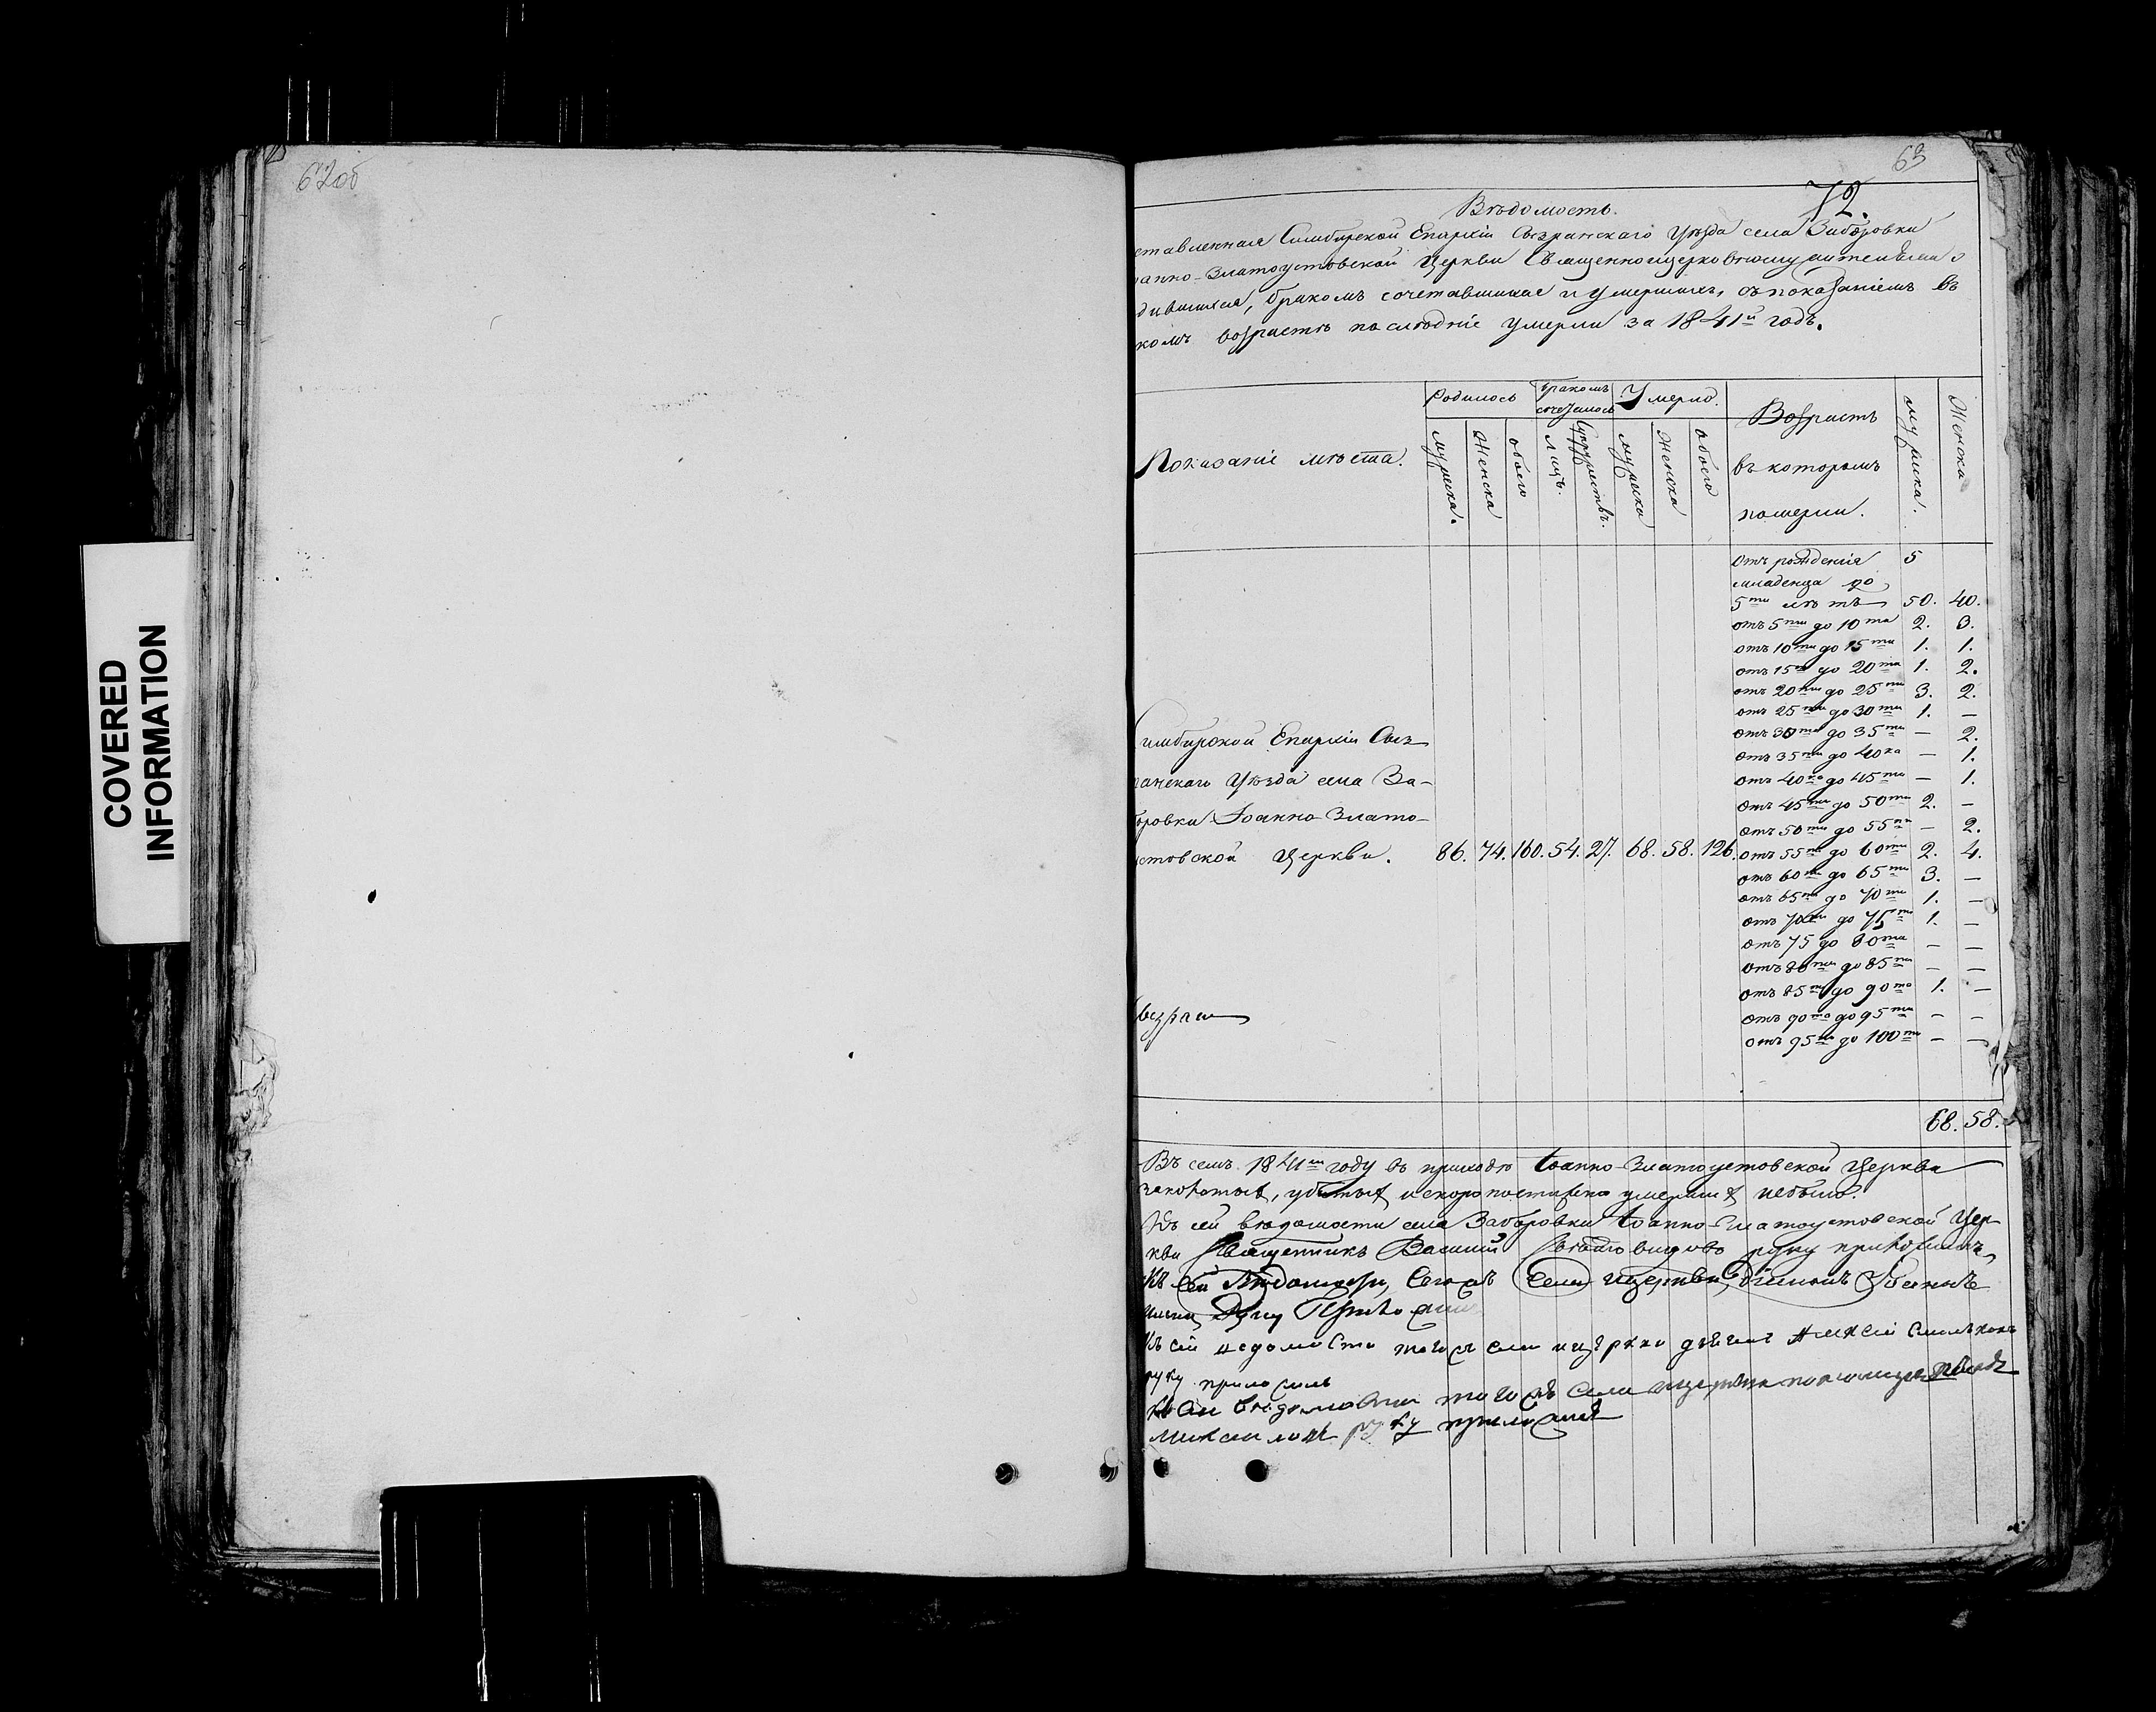 62об
COVERED
INFORMATION
63
72.
Вѣдомость.
ставленная Симбирской Епархіи Сызранскаго Уѣзда села Заборовки
анно-Златоустовской Церкви Священноцерковнослужителями о
дившихся, бракомъ сочетавшихся и умершихъ, съ показаніемъ въ
комъ возрастѣ послѣдніе умерли за 1841й годъ.
Показаніе мѣста.
Родилось
Бракомъ сочеталось
Умерло.
Возрастъ
въ которомъ
померли.
мужска.
Женска
обоего
лицъ.
Супружествъ.
мужска
Женска
обоего
мужска.
Женска
отъ рожденія 5
младенца до
5ти лѣтъ 50. 40.
отъ 5ти до 10ти 2. 3.
отъ 10ти до 15ти 1. 1.
отъ 15ти до 20ти 1. 2.
отъ 20ти до 25ти 3. 2.
отъ 25ти до 30ти 1. —
отъ 30ти до 35ти — 2.
отъ 35ти до 40ка — 1.
отъ 40ка до 45ти — 1.
отъ 45ти до 50ти 2. —
отъ 50ти до 55ти — 2.
отъ 55ти до 60ти 2. 4.
отъ 60ти до 65ти 3. —
отъ 65ти до 70ти 1. —
отъ 70ти до 75ти 1. —
отъ 75 до 80ти — —
отъ 80ти до 85ти — —
отъ 85ти до 90то 1. —
отъ 90то до 95ти — —
отъ 95ти до 100та — —
имбирской Епархіи Сыз
ранскаго Уѣзда села За-
боровки Іоанно-Злато-
устовской Церкви. 86. 74. 160. 54. 27. 68. 58. 126.
68. 58.
Въ семъ 1841м году въ приходѣ Іоанно-Златоустовской Церкви
убитыхъ и скоропостижно умершихъ небыло.
Къ сей вѣдомости села Заборовки Іоанно-Златоустовской Цер
кви Священникъ Василий руку приложилъ
Къ сей Вѣдомости, Тогожъ Села и церкви, Діаконъ
Руку Приложилъ
Къ сей ведомости тогожъ села и церкви дьячекъ Алексей
руку приложилъ
Къ сей вѣдомости тогожъ села и церкви пономарь
руку приложилъ